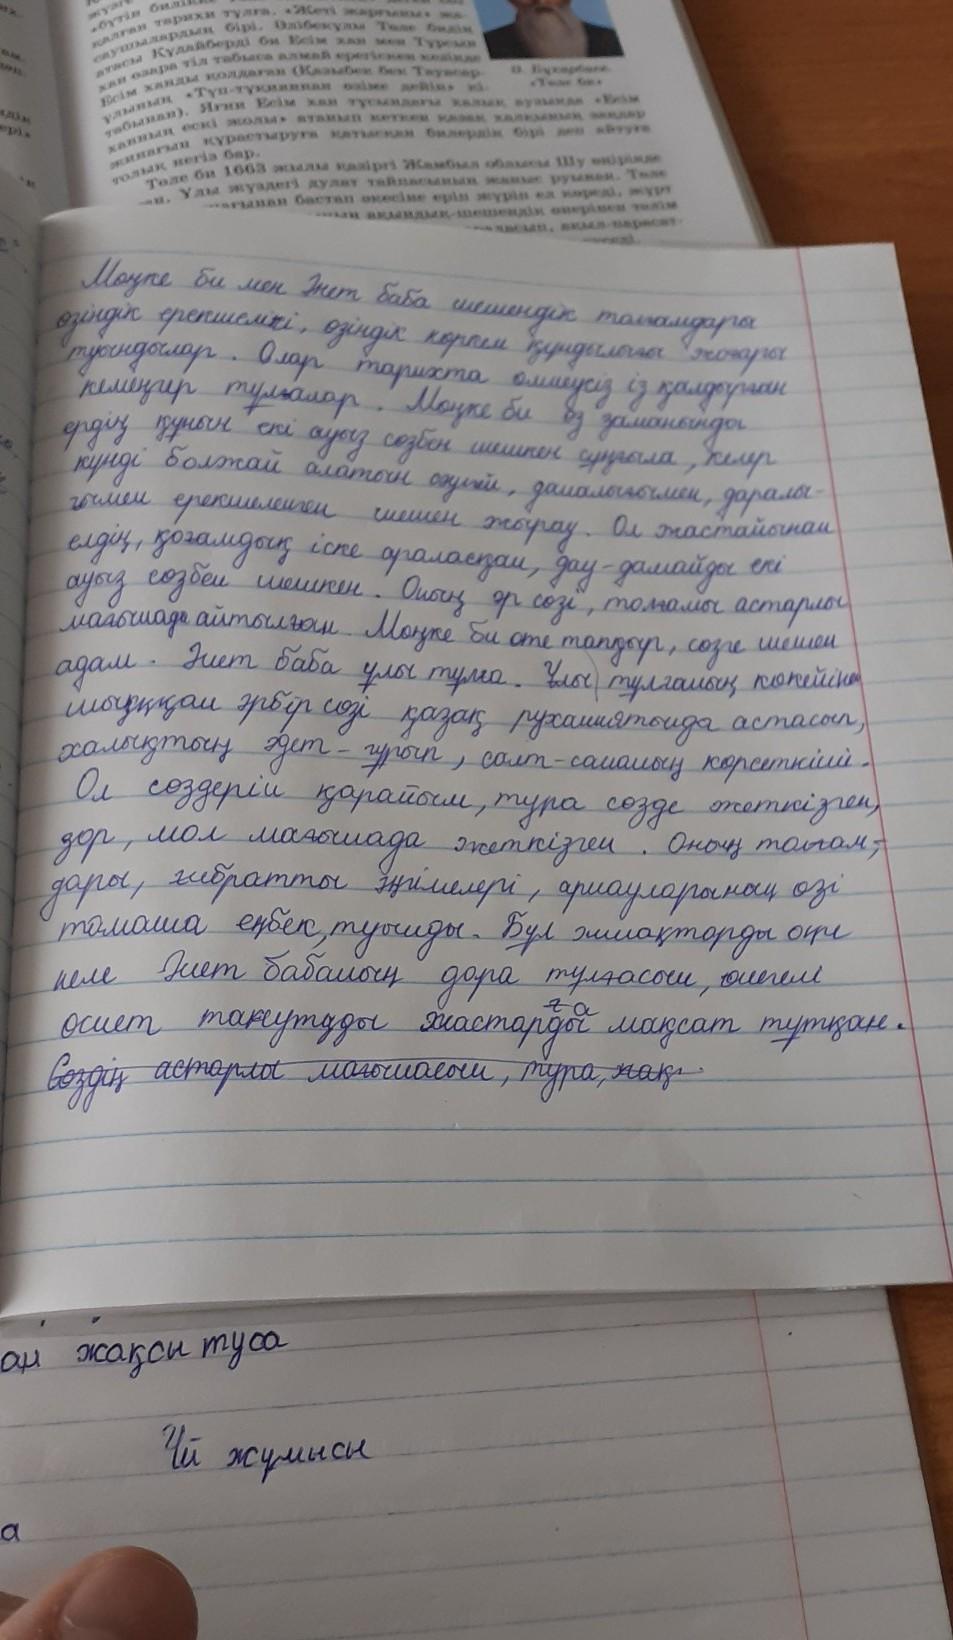 «бүтін билікке
қалған тарихи тұлға. «Жеті жарғыны» жа-
саушылардың бірі. Әлібекұлы Төле бидің
атасы Құдайберді би Есім хан мен Тұрсын
хан өзара тіл табыса алмай ерегіскен кезінде
Есім ханды қолдаған (Қазыбек бек Тауасар-
ұлының «Түп-тұқианнан өзіме дейін» кі-
табынан). Яғни Есім хан тұсындағы халық аузында «Есім
ханның ескі жолы» атанып кеткен қазақ халқының заңдар
жинағын құрастыруға қатысқан билердің бірі деп айтуға
толық негіз бар.
Төле би 1663 жылы қазіргі Жамбыл облысы Шу өңірінде
Ұлы жүздегі дулат тайпасының жаныс руынан. Төле
бастап әкесіне еріп жүріп ел көреді, жұрт
ақындық-шешендік өнерінен тәлім
ақыл-парасат-
Ә. Бұхарбаев.
«Төле би»
Мөңке би мен Әнет баба шешендік толғамдары
өзіндік ерекшелікі, өзіндік көркем құндылығы жоғары
туындылар. Олар тарихта өлшеусіз із қалдырған
кемеңгер тұлғалар. Мөңке би өз заманында
ердің құнын екі ауыз сөзбен шешкен сұңғыла, келер
күнді болжай алатын әулей, даналығымен, даралы-
ғымен ерекшеленген шешен жырау. Ол жастайынан
елдің, қоғамдық іске араласқан, дау-дамайды екі
ауыз сөзбен шешкен. Оның әр сөзі, толғамы астарлы
мағынада айтылған. Мөңке би өте тапқыр, сөзге шешен
адам. Әнет баба ұлы тұлға. Ұлы тұлғаның көкейінен
шыққан әрбір сөзі қазақ руханиятында астасып,
халықтың әдет-ғұрып, салт-сананың көрсеткіші.
Ол сөздерін қарапайым, тура сөзде жеткізген,
зор, мол мағынада жеткізген. Оның толғам-
дары, ғибратты әңгімелері, арнауларының өзі
тамаша еңбек, туынды. Бұл
келе Әнет бабаның дара тұлғасын,
өсиет жастарды ға мақсат тұтқан.
Сөздің астарлы мағынасын, тура, нақ
ан жақсы туса
Үй жұмысы
а